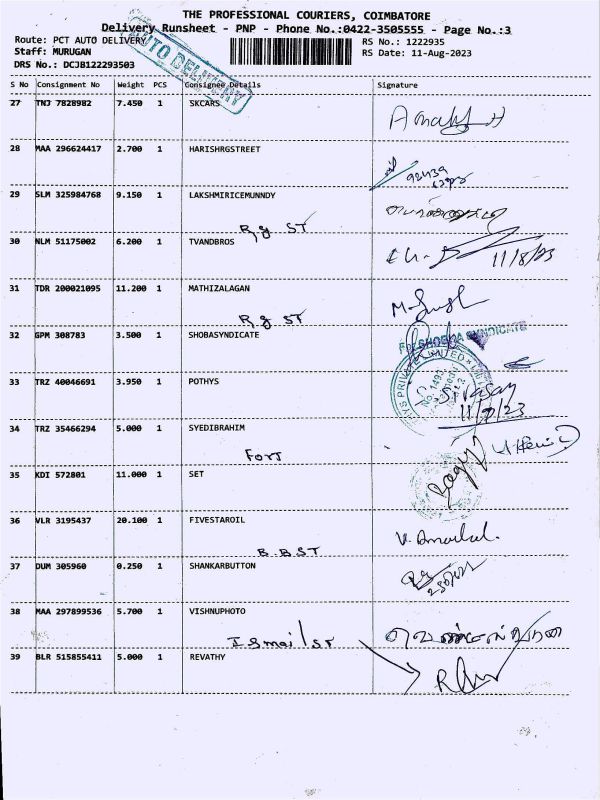 THE PROFESSIONAL COURIERS, COIMBATORE
Delivery Runsheet - PNP - Phone No.:0422-3505555 - Page No.:3
Route: PCT AUTO DELIVERY
RS No.: 1222935
Staff: MURUGAN
RS Date: 11-Aug-2023
DRS No.: DCJB122293503
AUTO DELIVERY
S No Consignment No Weight PCS Consignee Details Signature
27 TNJ 7828982 7.450 1 SKCARS
28 MAA 296624417 2.700 1 HARISHRGSTREET
29 SLM 325984768 9.150 1 LAKSHMIRICEMUNNDY
R g ST
30 NLM 51175002 6.200 1 TVANDBROS
11/8/23
31 TDR 200021095 11.200 1 MATHIZALAGAN
R g ST
32 GPM 308783 3.500 1 SHOBASYNDICATE
SYNDICATE
33 TRZ 40046691 3.950 1 POTHYS
PRIVATE LIMITED
34 TRZ 35466294 5.000 1 SYEDIBRAHIM
Fort
35 KDI 572801 11.000 1 SET
36 VLR 3195437 20.100 1 FIVESTAROIL
B.B ST
37 DUM 305960 0.250 1 SHANKARBUTTON
38 MAA 297899536 5.700 1 VISHNUPHOTO
Ismail ST
39 BLR 515855411 5.000 1 REVATHY